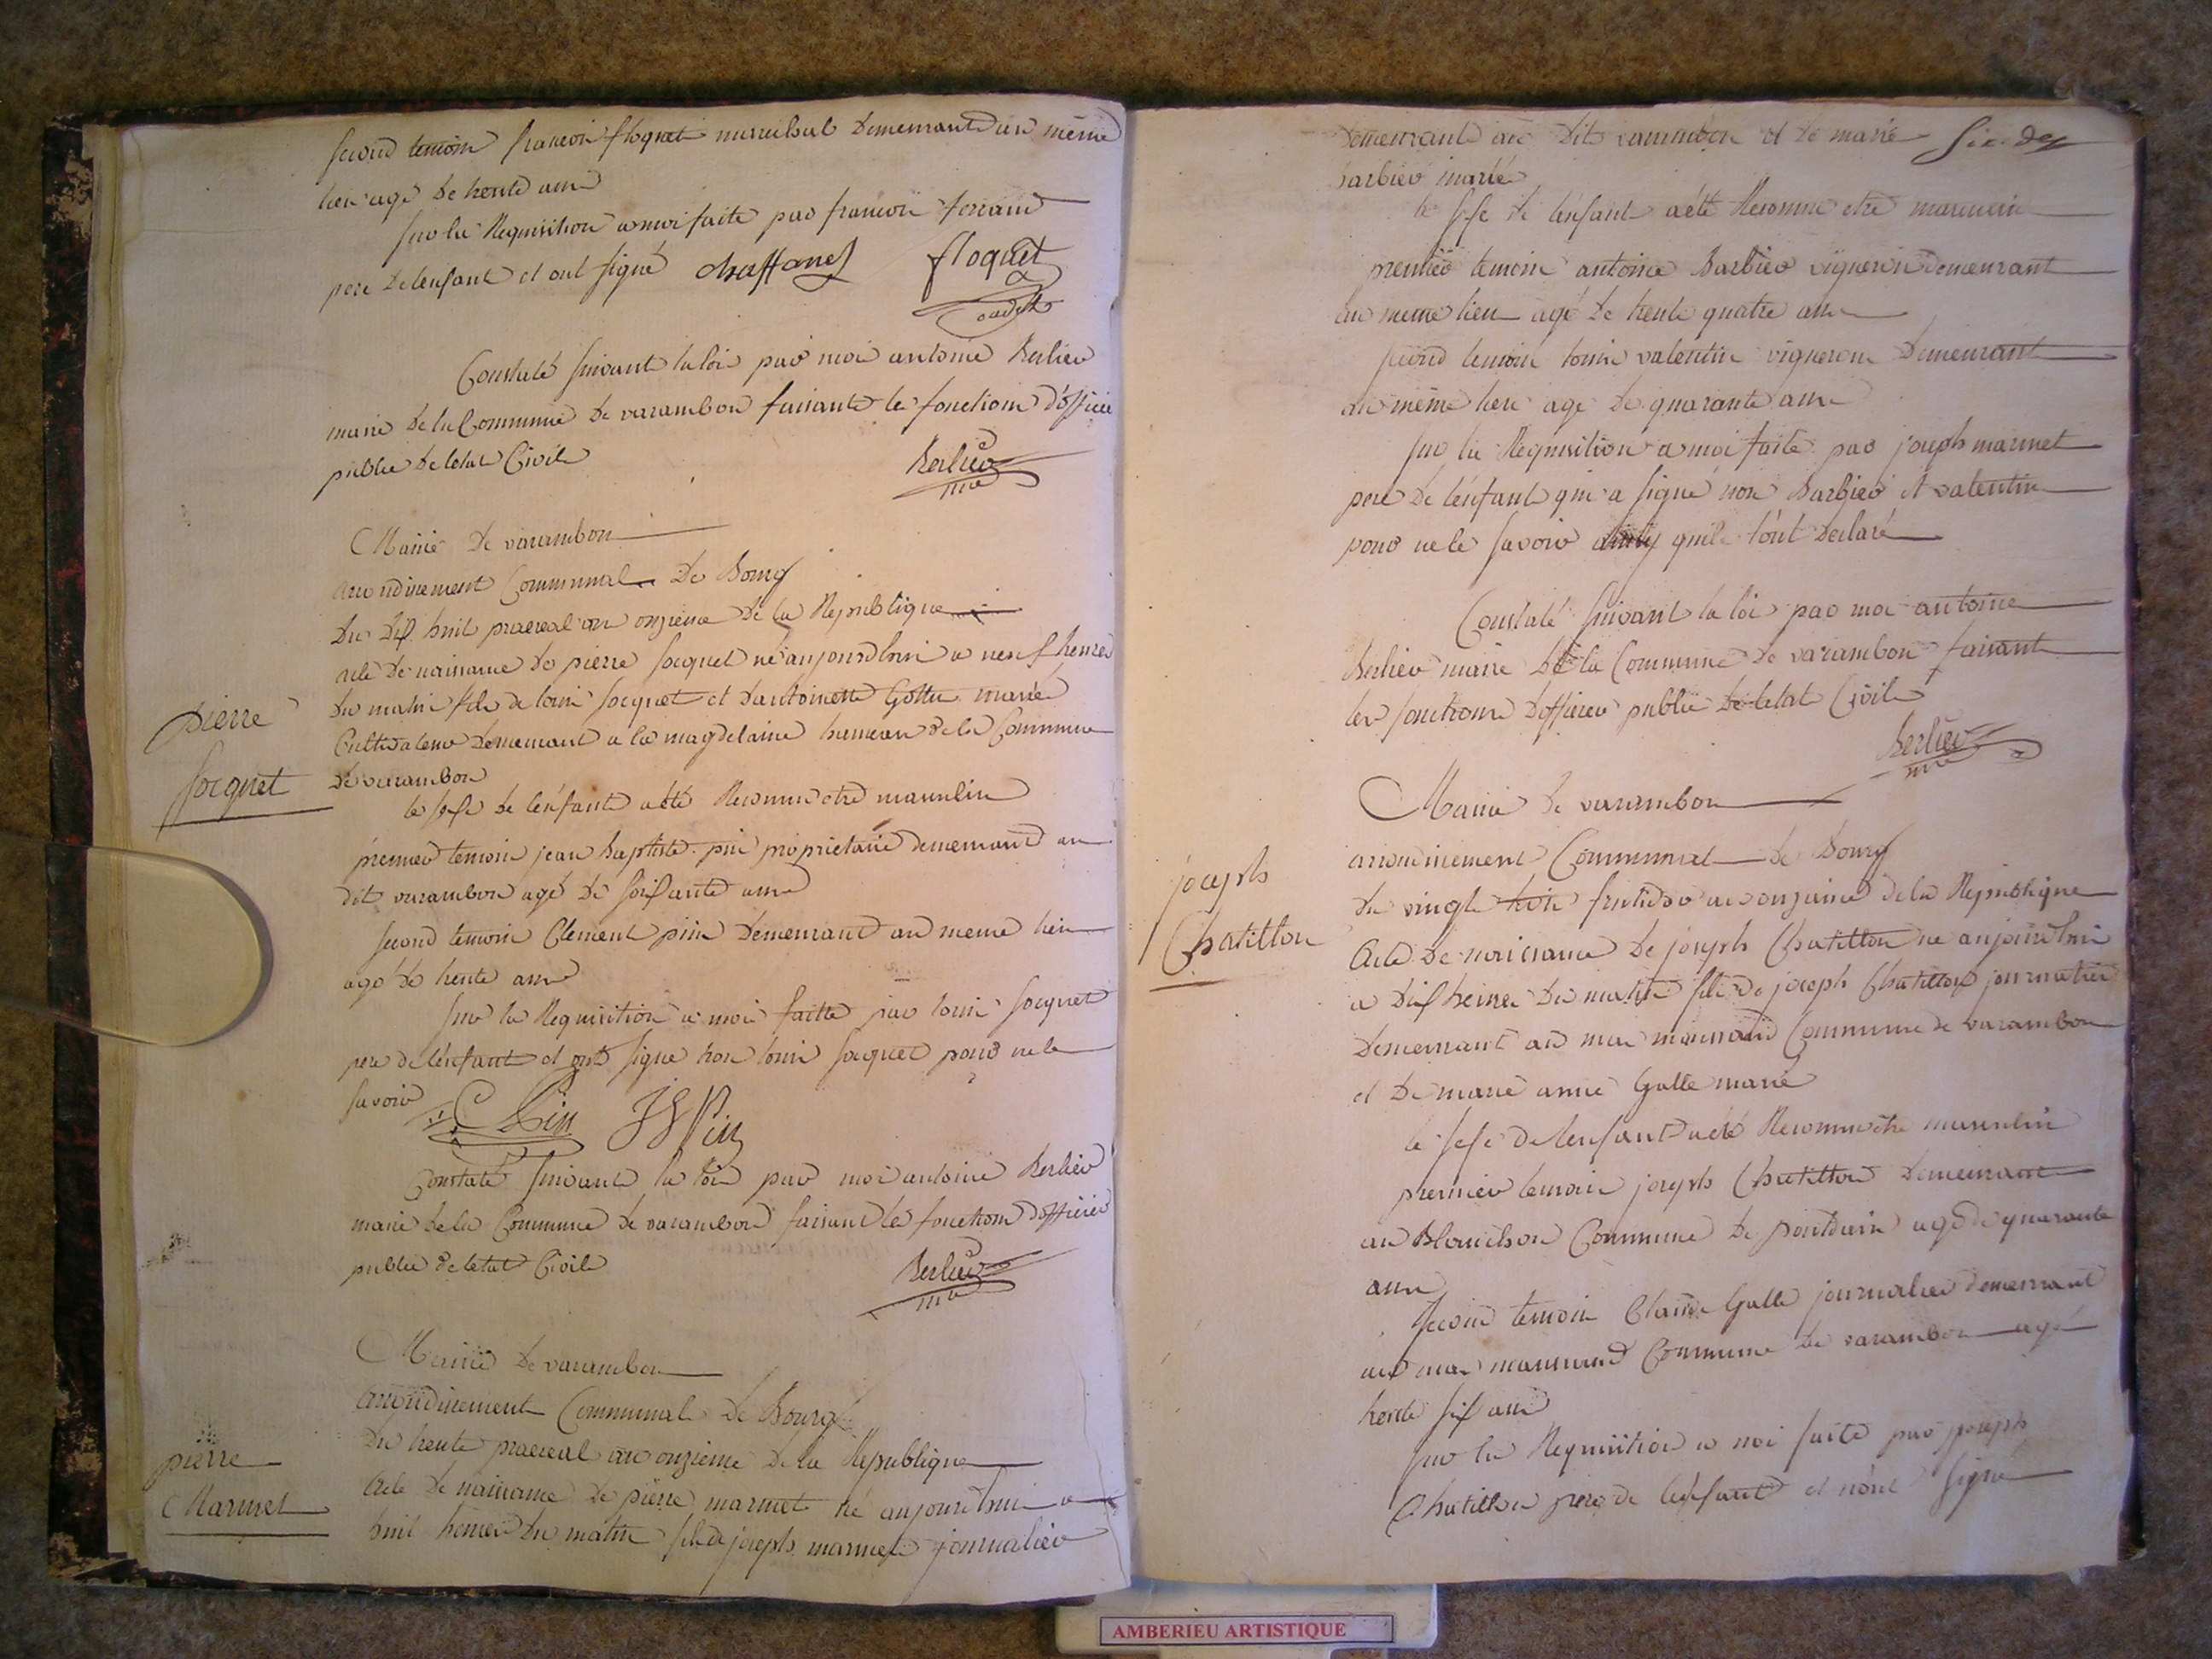 second temoin francois floquet marechal demeurant au même
lieu agé de trente ans
sur la Requisition a moi faite par francois
pere de lenfant et ont signé chaffanel floquet
Constaté suivant la loi par moi antoine Berlier
maire de la Commune de varambon faisant les fonctions d'officier
public de letat Civil Berlier
mre
Mairie de varambon
arrondissement Communal de Bourg
du dix huit prairial an onzieme de la Republique
acte de naissance de pierre Socquet né aujourdhui a neuf heures
du matin fils de louis Socquet et dantoinette Gottu mariés
Cultivateur demeurant a la magdelaine hameau de la Commune
de varambon
pierre
Socquet
le sexe de lenfant a été Reconnu etre masculin
premier temoin jean baptiste pin proprietaire demeurant au
dit varambon agé de soixante ans
second temoin Clement pin demeurant au meme lieu
agé de trente ans
sur la Requisition a moi faitte par louis Socquet
pere de lenfant et ont signe non louis Socquet pour ne le
savoir C Pin JB Pin
Constaté suivant la loi par moi antoine Berlier
maire de la Commune de varambon faisant les fonctions dofficier
public de letat Civil Berlier
mre
Mairie de varambon
arrondissement Communal de Bourg
du trente prairial an onzieme de la Republique
acte de naissance de pierre marmet né aujourdhui a
huit heures du matin fils de joseph marmet journalier
pierre
Marmet
demeurant au dit varambon et de marie
barbier mariés
le sexe de lenfant a été Reconnu etre masculin
premier temoin antoine Barbier vigneron demeurant
au meme lieu agé de trente quatre ans
second temoin louis valentin vigneron demeurant
au même lieu agé de quarante ans
sur la Requisition a moi faite par joseph marmet
pere de lenfant qui a signé non Barbier et valentin
pour ne le savoir ainsy quils l'ont declaré
Constaté suivant la loi par moi antoine
Berlier maire de la Commune de varambon faisant
les fonctions dofficier public de letat Civil
Berlier
mre
Mairie de varambon
arrondissement Communal de Bourg
du vingt trois fructidor an onzieme de la Republique
Acte de naissance de joseph Chatillon né aujourdhui
a dix heures du matin fils de joseph Chatillon journalier
demeurant au mas Commune de varambon
et de marie anne Galle mariés
joseph
Chatillon
le sexe de lenfant a été Reconnu etre masculin
premier temoin joseph Chatillon demeurant
au Blanchon Commune de pontdain agé de quarante
ans
second temoin Claude Galle journalier demeurant
au mas Commune de varambon agé
trente six ans
sur la Requisition a moi faite par joseph
Chatillon pere de lenfant et n'ont signé
AMBERIEU ARTISTIQUE